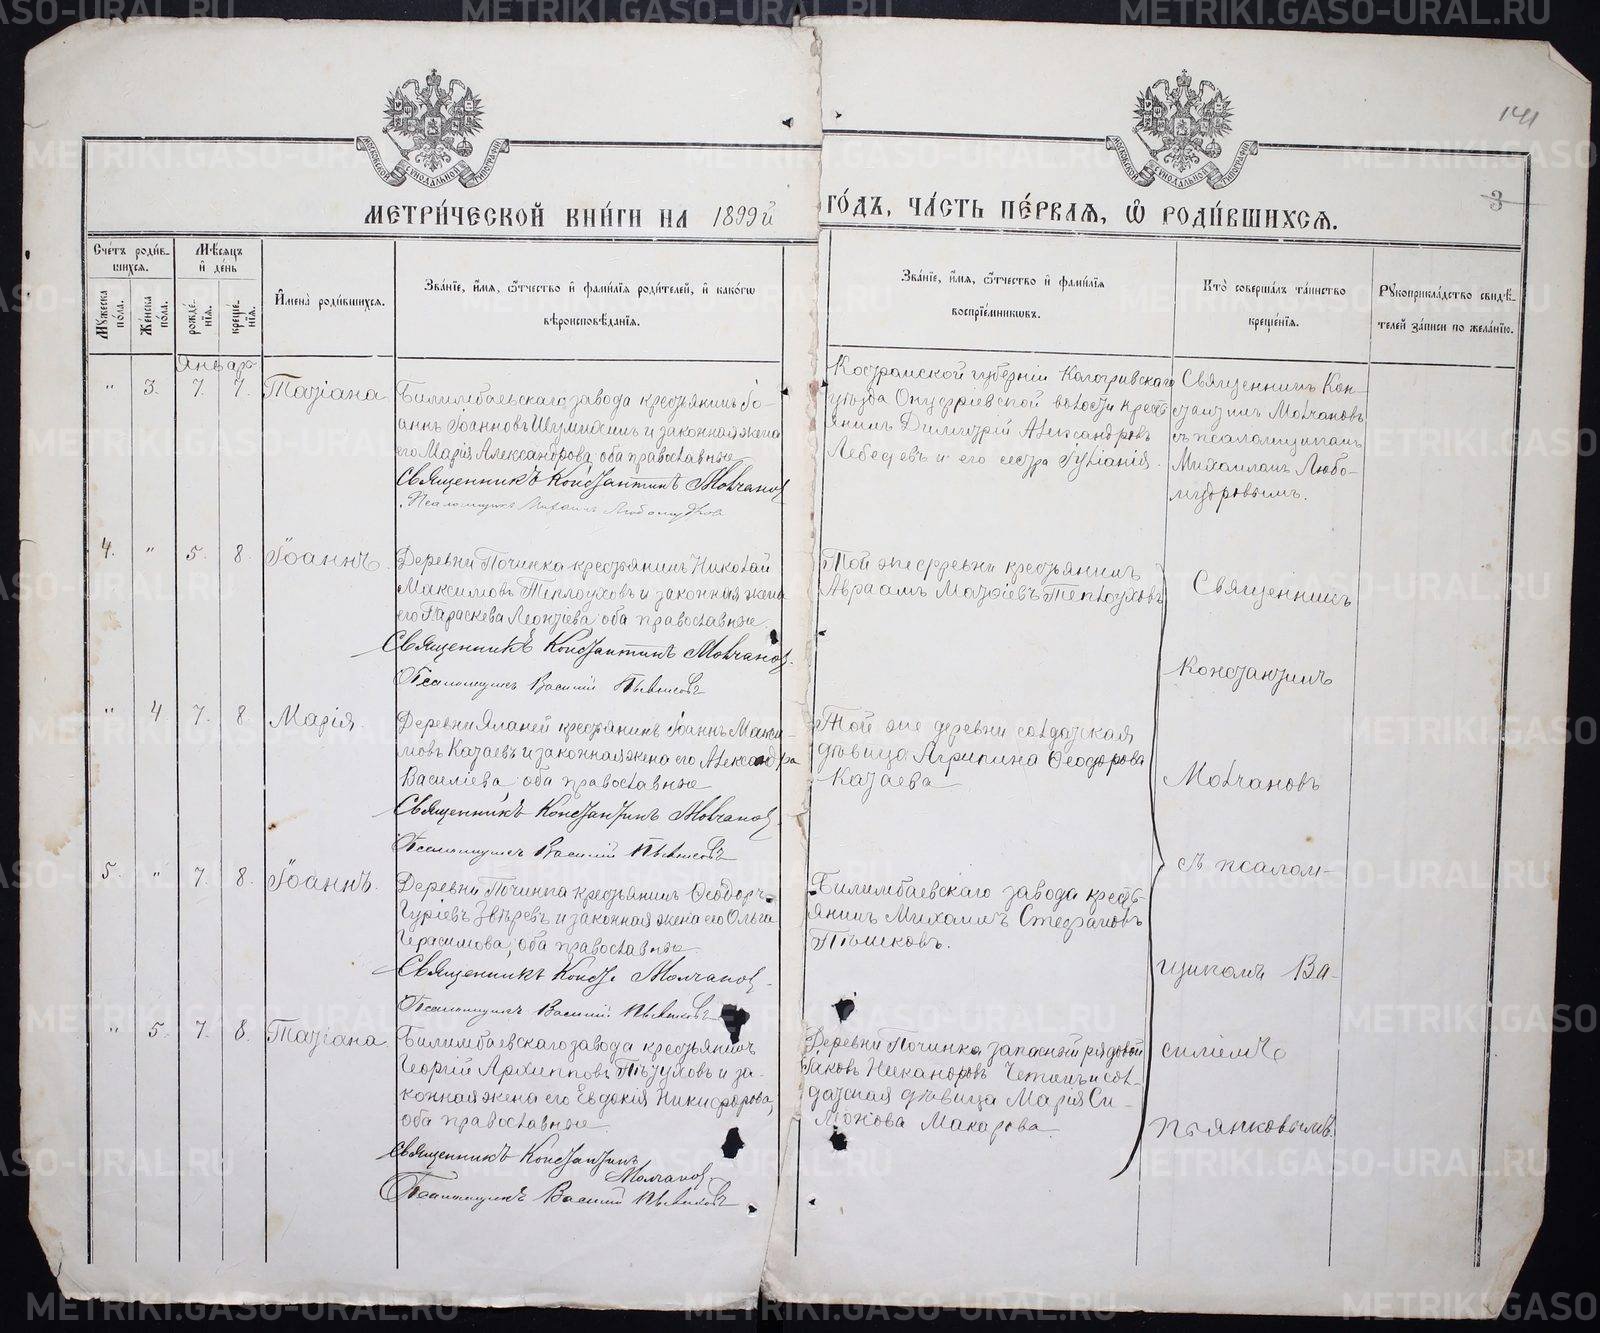 141
3
МЕТРИ́ЧЕСКОЙ КНИ́ГИ НА 1899й ГО́ДЪ, ЧА́СТЬ ПЕ́РВАЯ, Ѡ РОДИ́ВШИХСЯ.
Сче́тъ роди́в-
шихся.
Му́жеска по́ла.
Же́нска по́ла.
Мѣ́сяцъ и де́нь
рожде́-
нїя.
креще́-
нїя.
Имена̀ роди́вшихся.
Зва́нїе, и́мя, ѻ́тчество и фами́лїя роди́телей, и како́гѡ
вѣроисповѣ́данїя.
Зва́нїе, и́мя, ѻ́тчество и фами́лїя
воспрїе́мникѡвъ.
Кто̀ соверша́лъ та́инство
креще́нїя.
Рукоприкла́дство свидѣ́-
телей за́писи по жела́нїю.
Январь
" 3. 7. 7. Татіана
Билимбаевскаго завода крестьянинъ Іо-
аннъ Іоанновъ и законная жена
его Марія Александрова, оба православные
Священникъ Константинъ Молчановъ
Псаломщикъ Михаилъ Любомудровъ
Костромской губерніи Кологривскаго
уѣзда волости кресть-
янинъ Димитрій Александровъ
Лебедевъ и его сестра Іуліанія.
Священникъ Кон-
стантинъ Молчановъ
съ псаломщикомъ
Михаиломъ Любо-
мудровымъ.
4. " 5. 8. Іоаннъ.
Деревни Починка крестьянинъ Николай
Максимовъ Теплоуховъ и законная жена
его Параскева Леонтіева, оба православные.
Священникъ Константинъ Молчановъ.
Псаломщикъ Василій Пьянковъ
Той же деревни крестьянинъ
Авраамъ Матѳіевъ Теплоуховъ
" 4. 7. 8. Марія.
Деревни крестьянинъ Іоаннъ Макси-
мовъ Катаевъ и законная жена его Александра
Василіева, оба православные
Священникъ Константинъ Молчановъ.
Псаломщикъ Василій Пьянковъ
Той же деревни солдатская
дѣвица Агрипина Ѳеодорова
Катаева
5. " 7. 8. Іоаннъ.
Деревни Починка крестьянинъ Ѳеодоръ
Гуріевъ Звѣревъ и законная жена его Ольга
Герасимова, оба православные
Священникъ Конст. Молчановъ.
Псаломщикъ Василій Пьянковъ
Билимбаевскаго завода кресть-
янинъ Михаилъ Стефановъ
Пѣшковъ.
" 5. 7. 8. Татіана
Билимбаевскаго завода крестьянинъ
Георгій Архипповъ Пѣтуховъ и за-
конная жена его Евдокія Никифорова,
оба православные.
Священникъ Константинъ
Молчановъ.
Псаломщикъ Василій Пьянковъ
Деревни Починка запасный рядовой
Іаковъ Никаноровъ и сол-
датская дѣвица Марія Си-
монова Макарова.
Священникъ
Константинъ
Молчановъ
съ псалом-
щикомъ Ва-
силіемъ
Пьянковымъ.
METRIKI.GASO-URAL.RU